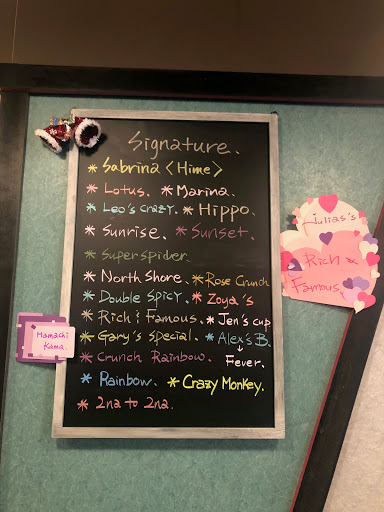 Signature.
* Sabrina <Hime>
* Lotus. * Marina.
* Leo's Crazy. * Hippo.
* Sunrise. * Sunset.
* Super spider.
* North Shore. * Rose Crunch
* Double Spicy. * Zoya's
* Rich & Famous. * Jen's cup
* Gary's special. * Alex's B.
↓
* Crunch Rainbow. Fever.
* Rainbow. * Crazy Monkey.
* 2na to 2na.
Hamachi
Kama.
Julias's
Rich &
Famous